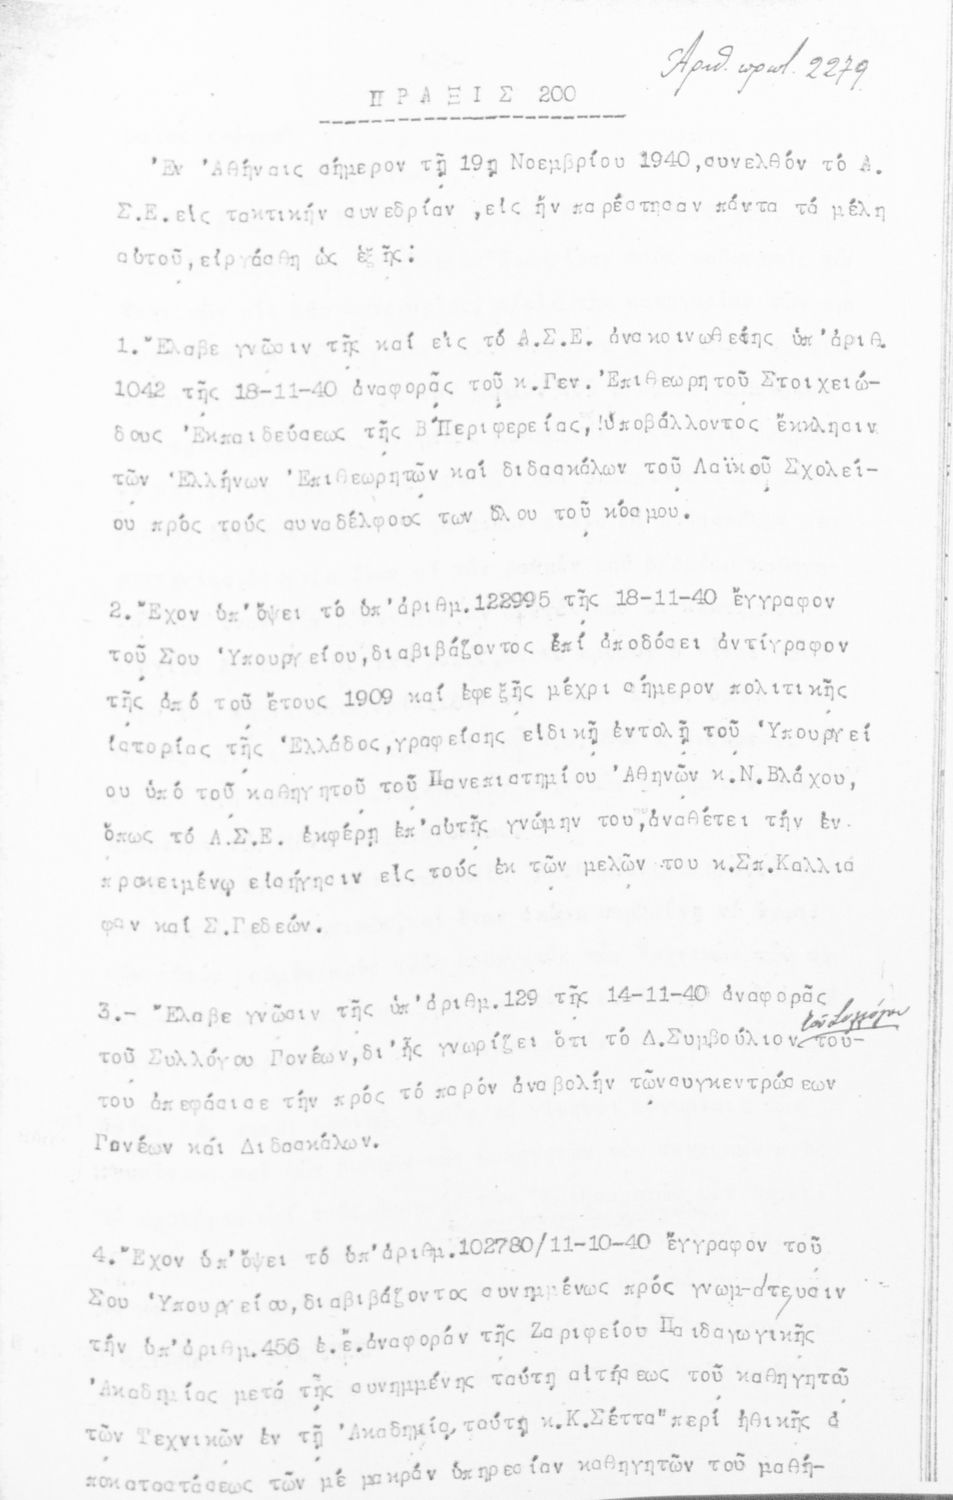 Ἀριθ. πρωτ. 2279
ΠΡΑΞΙΣ 200
Ἐν Ἀθήναις σήμερον τῇ 19ῃ Νοεμβρίου 1940, συνελθόν τό Α.
Σ.Ε. εἰς τακτικήν συνεδρίαν , εἰς ἥν παρέστησαν πάντα τά μέλη
αὐτοῦ, εἰργάσθη ὡς ἑξῆς:
1. Ἔλαβε γνῶσιν τῆς καί εἰς τό Α.Σ.Ε. ἀνακοινωθείσης ὑπ' ἀριθ.
1042 τῆς 18-11-40 ἀναφορᾶς τοῦ κ. Γεν. Ἐπιθεωρητοῦ Στοιχειώ-
δους Ἐκπαιδεύσεως τῆς Β Περιφερείας, ὑποβάλλοντος ἔκκλησιν
τῶν Ἑλλήνων Ἐπιθεωρητῶν καί διδασκάλων τοῦ Λαϊκοῦ Σχολεί-
ου πρός τούς συναδέλφους των ὅλου τοῦ κόσμου.
2. Ἔχον ὑπ' ὄψει τό ὑπ' ἀριθμ. 122995 τῆς 18-11-40 ἔγγραφον
τοῦ Σου Ὑπουργείου, διαβιβάζοντος ἐπί ἀποδόσει ἀντίγραφον
τῆς ἀπό τοῦ ἔτους 1909 καί ἐφεξῆς μέχρι σήμερον πολιτικῆς
ἱστορίας τῆς Ἑλλάδος, γραφείσης εἰδικῇ ἐντολῇ τοῦ Ὑπουργεί
ου ὑπό τοῦ καθηγητοῦ τοῦ Πανεπιστημίου Ἀθηνῶν κ. Ν. Βλάχου,
ὅπως τό Α.Σ.Ε. ἐκφέρῃ ἐπ' αὐτῆς γνώμην του, ἀναθέτει τήν ἐν
προκειμένῳ εἰσήγησιν εἰς τούς ἐκ τῶν μελῶν του κ. Σπ. Καλλιά
φαν καί Σ. Γεδεών.
3.- Ἔλαβε γνῶσιν τῆς ὑπ' ἀριθμ. 129 τῆς 14-11-40 ἀναφορᾶς
τοῦ Συλλόγου
τοῦ Συλλόγου Γονέων, δι' ἧς γνωρίζει ὅτι τό Δ. Συμβούλιον τού-
του ἀπεφάσισε τήν πρός τό παρόν ἀναβολήν τῶν συγκεντρώσεων
Γονέων καί Διδασκάλων.
4. Ἔχον ὑπ' ὄψει τό ὑπ' ἀριθμ. 102780/11-10-40 ἔγγραφον τοῦ
Σου Ὑπουργείου, διαβιβάζοντος συνημμένως πρός γνωμάτευσιν
τήν ὑπ' ἀριθμ. 456 ἐ.ἔ. ἀναφοράν τῆς Ζαριφείου Παιδαγωγικῆς
Ἀκαδημίας μετά τῆς συνημμένης ταύτῃ αἰτήσεως τοῦ καθηγητοῦ
τῶν Τεχνικῶν ἐν τῇ Ἀκαδημίᾳ ταύτῃ κ. Κ. Σέττα "περί ἠθικῆς ἀ
ποκαταστάσεως τῶν μέ μακράν ὑπηρεσίαν καθηγητῶν τοῦ μαθή-